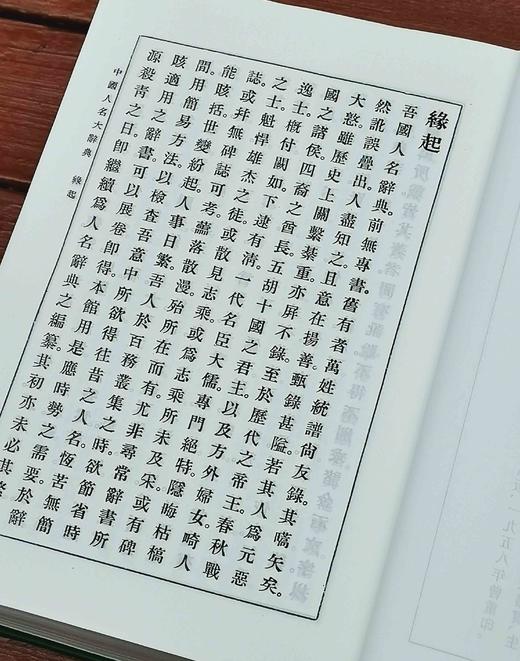 緣起
吾國人名辭典。前無專書。舊有者萬姓統譜尙友錄。其嚆矢矣。
然訛誤疊出。人盡知之。且意在揚善。甄錄甚隘。若其人爲元惡
大憝。雖歷史上關繫綦重。亦屏不錄。至於歷代之帝王。春秋戰
國之諸侯。四裔之酋長。五胡十國之君主。以及方外婦女。畸人
逸士。槪付闕如。下逮有清。代名臣大儒。專門絕特。隱晦枯槁
之士。魁悍雄杰之徒。或散見志乘。或爲志乘所未及采。或有碑
誌。或幷無碑誌可考。蠹落散漫。殆所在而有。尤非尋常辭書所
能晐括。世變紛起。人事日繁。吾人於百務叢集之時。欲節省時
間。用簡易方法。以檢查吾意中所欲得往昔之人名。恆苦無簡
晐適用之辭書。可以展卷卽得。本館用是應時勢之需要。於辭
源殺青之日。卽繼續爲人名辭典之編纂。其初亦未必其
中國人名大辭典 緣起
一九五八年曾重印。